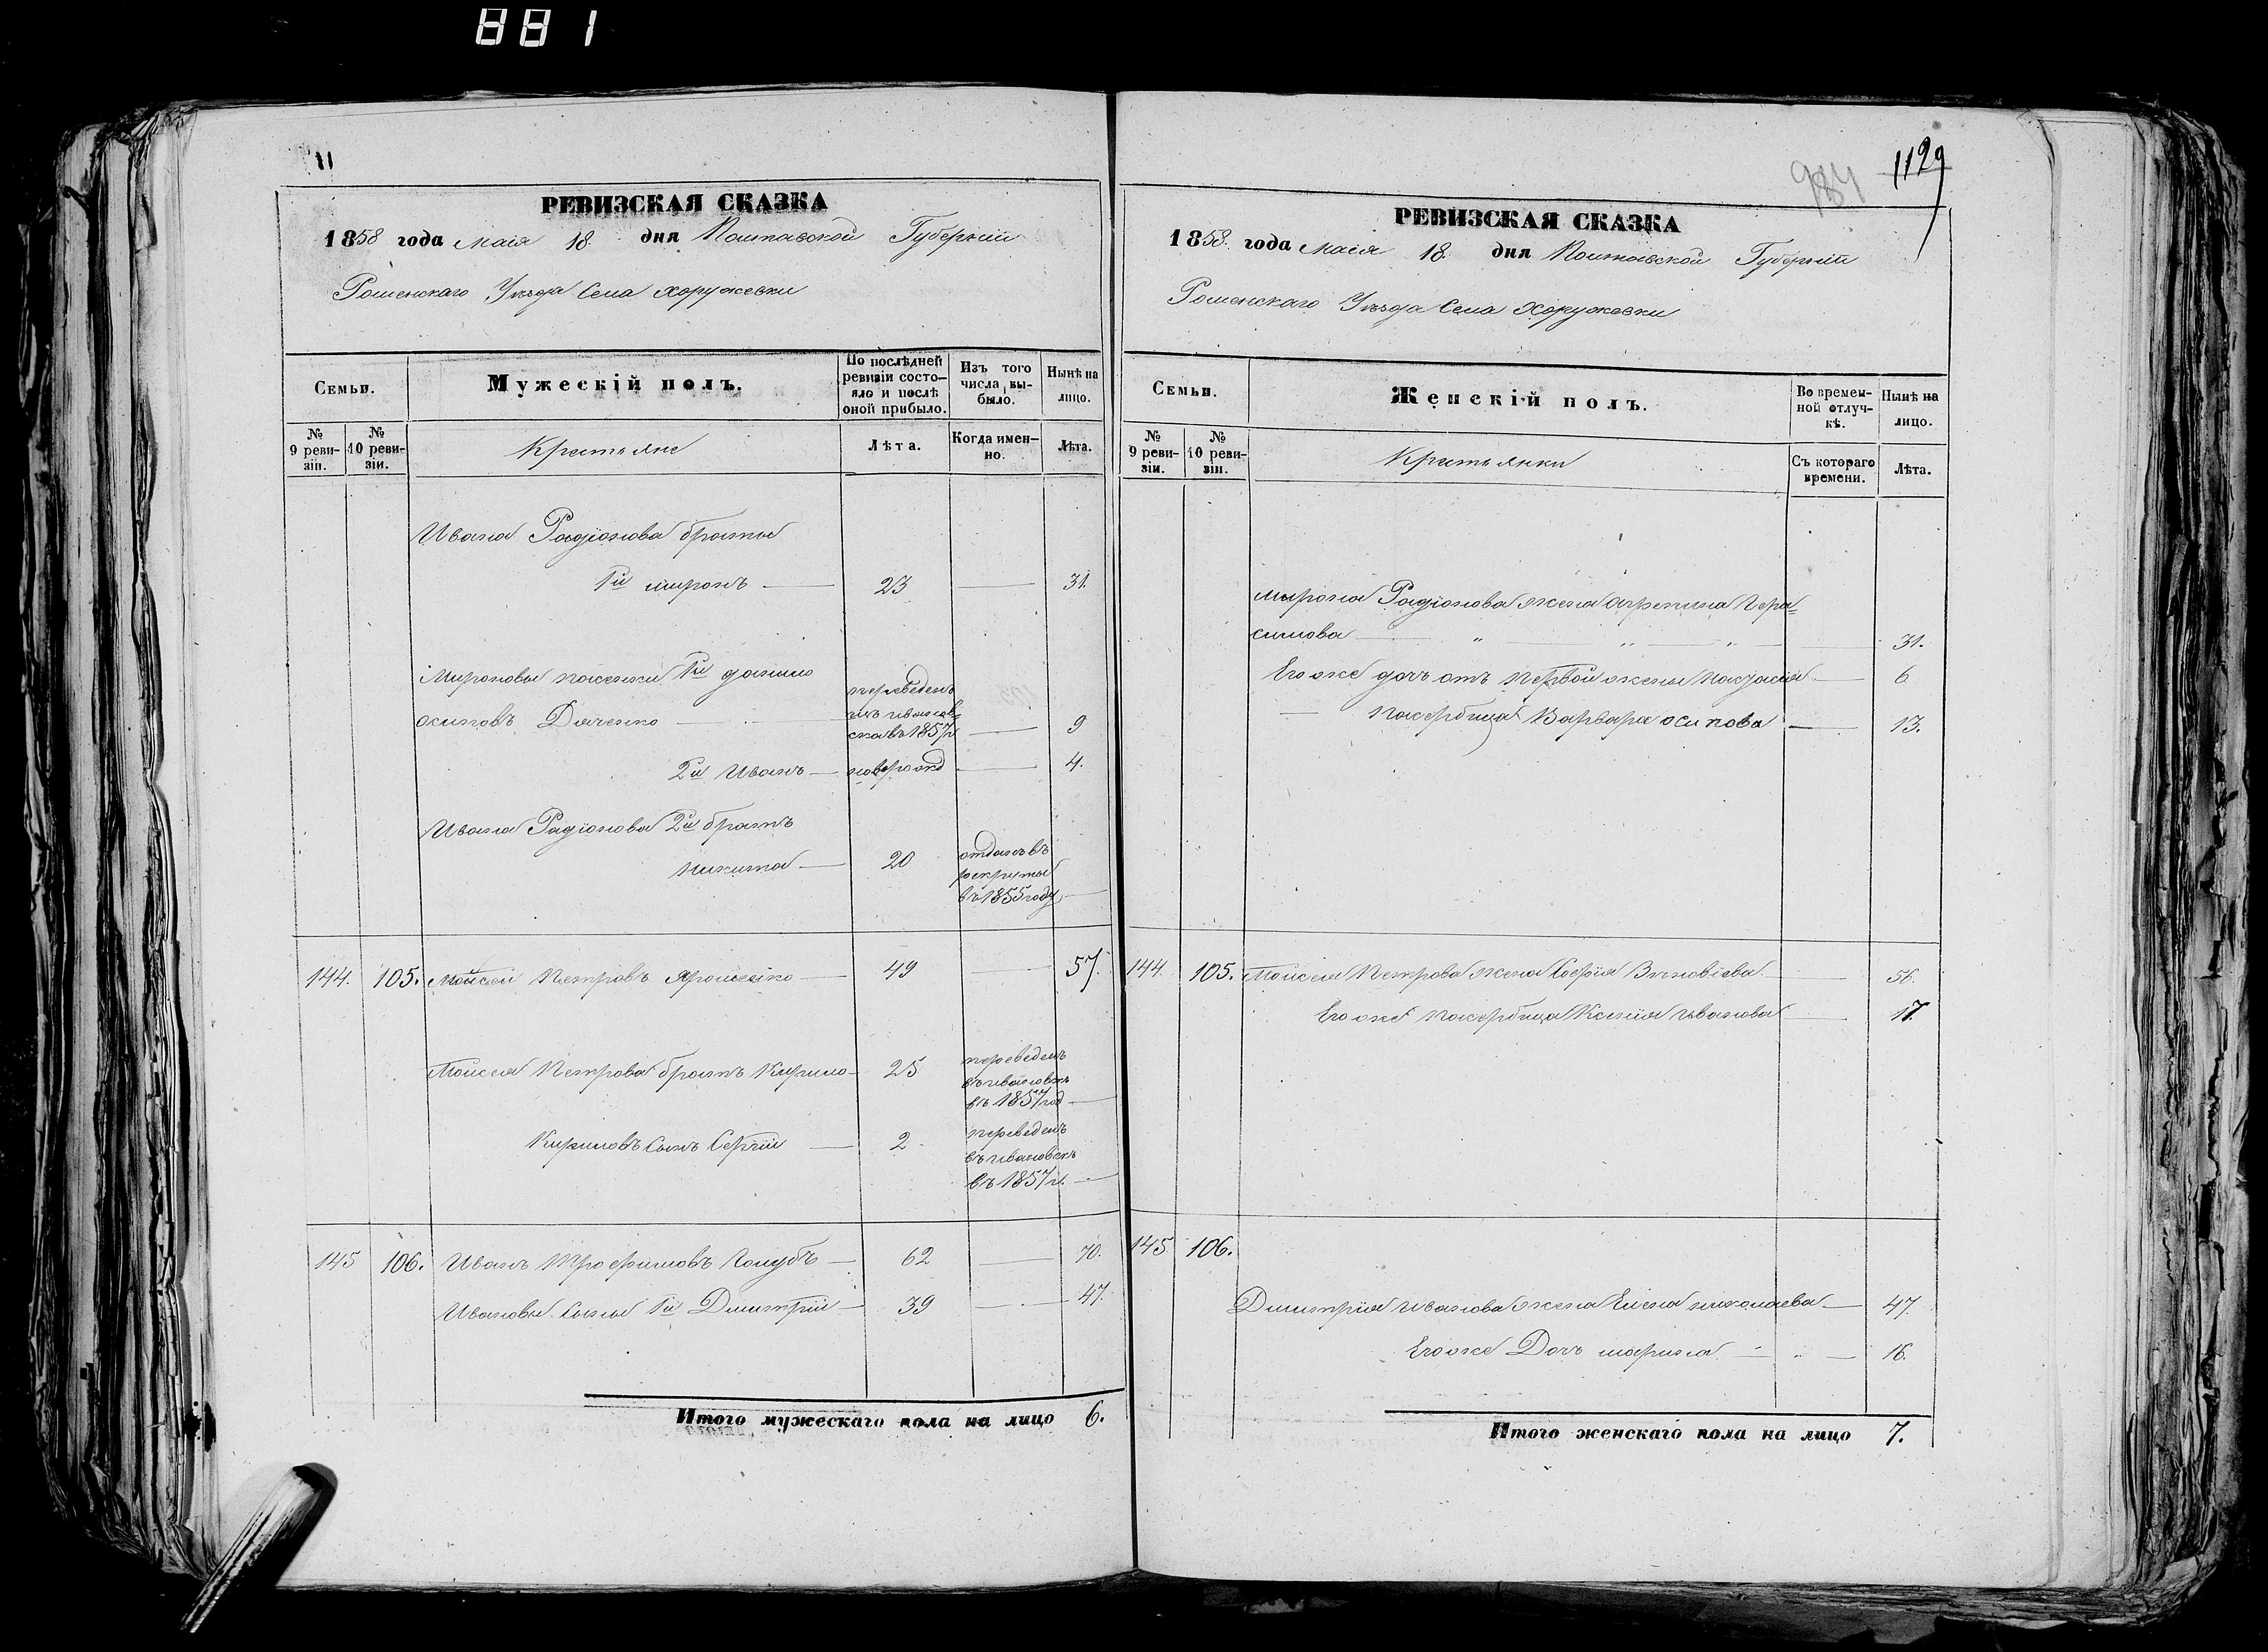 881
11
РЕВИЗСКАЯ СКАЗКА
1858 года Маія 18 дня Полтавской Губерніи
Роменскаго Уѣзда Села Хоружевки
Семьи.
Мужескій полъ.
По послѣдней ревизіи состояло и послѣ оной прибыло.
Изъ того числа выбыло.
Нынѣ на лицо.
№ 9 ревизіи.
№ 10 ревизіи.
Крестьяне
Лѣта.
Когда именно.
Лѣта.
Ивана Радіонова братья
1й Миронъ — 23 — 31.
Мироновы пасенки 1й Данило
Осиповъ Дяченко — переведенъ изъ Ивановска въ 1857 г — 9
2й Иванъ — новорожд — 4.
Ивана Радіонова 2й братъ
Никита — 20 отданъ въ рекруты въ 1855 году —
144. 105. Мойсей Петровъ Ярошенко — 49 — 57.
Мойсея Петрова братъ Кирило — 25 переведенъ въ Ивановскъ въ 1857 год —
Кириловъ Сынъ Сергій — 2 переведенъ въ Ивановскъ въ 1857 г. —
145 106. Иванъ Трофимовъ Голубъ — 62 — 70.
Ивановы Сыны 1й Дмитрій — 39 — 47.
Итого мужескаго пола на лицо 6.
984 1129
РЕВИЗСКАЯ СКАЗКА
1858. года Маія 18. дня Полтавской Губерніи
Роменскаго Уѣзда Села Хоружевки
Семьи.
Женскій полъ.
Во временной отлучкѣ.
Нынѣ на лицо.
№ 9 ревизіи.
№ 10 ревизіи.
Крестьянки
Съ котораго времени.
Лѣта.
Мирона Радіонова жена Агрепина Гера=
симова — „ — „ — „ — 31.
Егоже дочь отъ первой жены — 6
— пасербица Варвара Осипова — 13.
144. 105. Мойсея Петрова жена Софія Зѣновіева — 56.
Егоже пасербица Ксенія Иванова — 17.
145 106.
Димитрія Иванова жена Елена Николаева — 47.
Егоже Дочь Марина — „ — 16.
Итого женскаго пола на лицо 7.